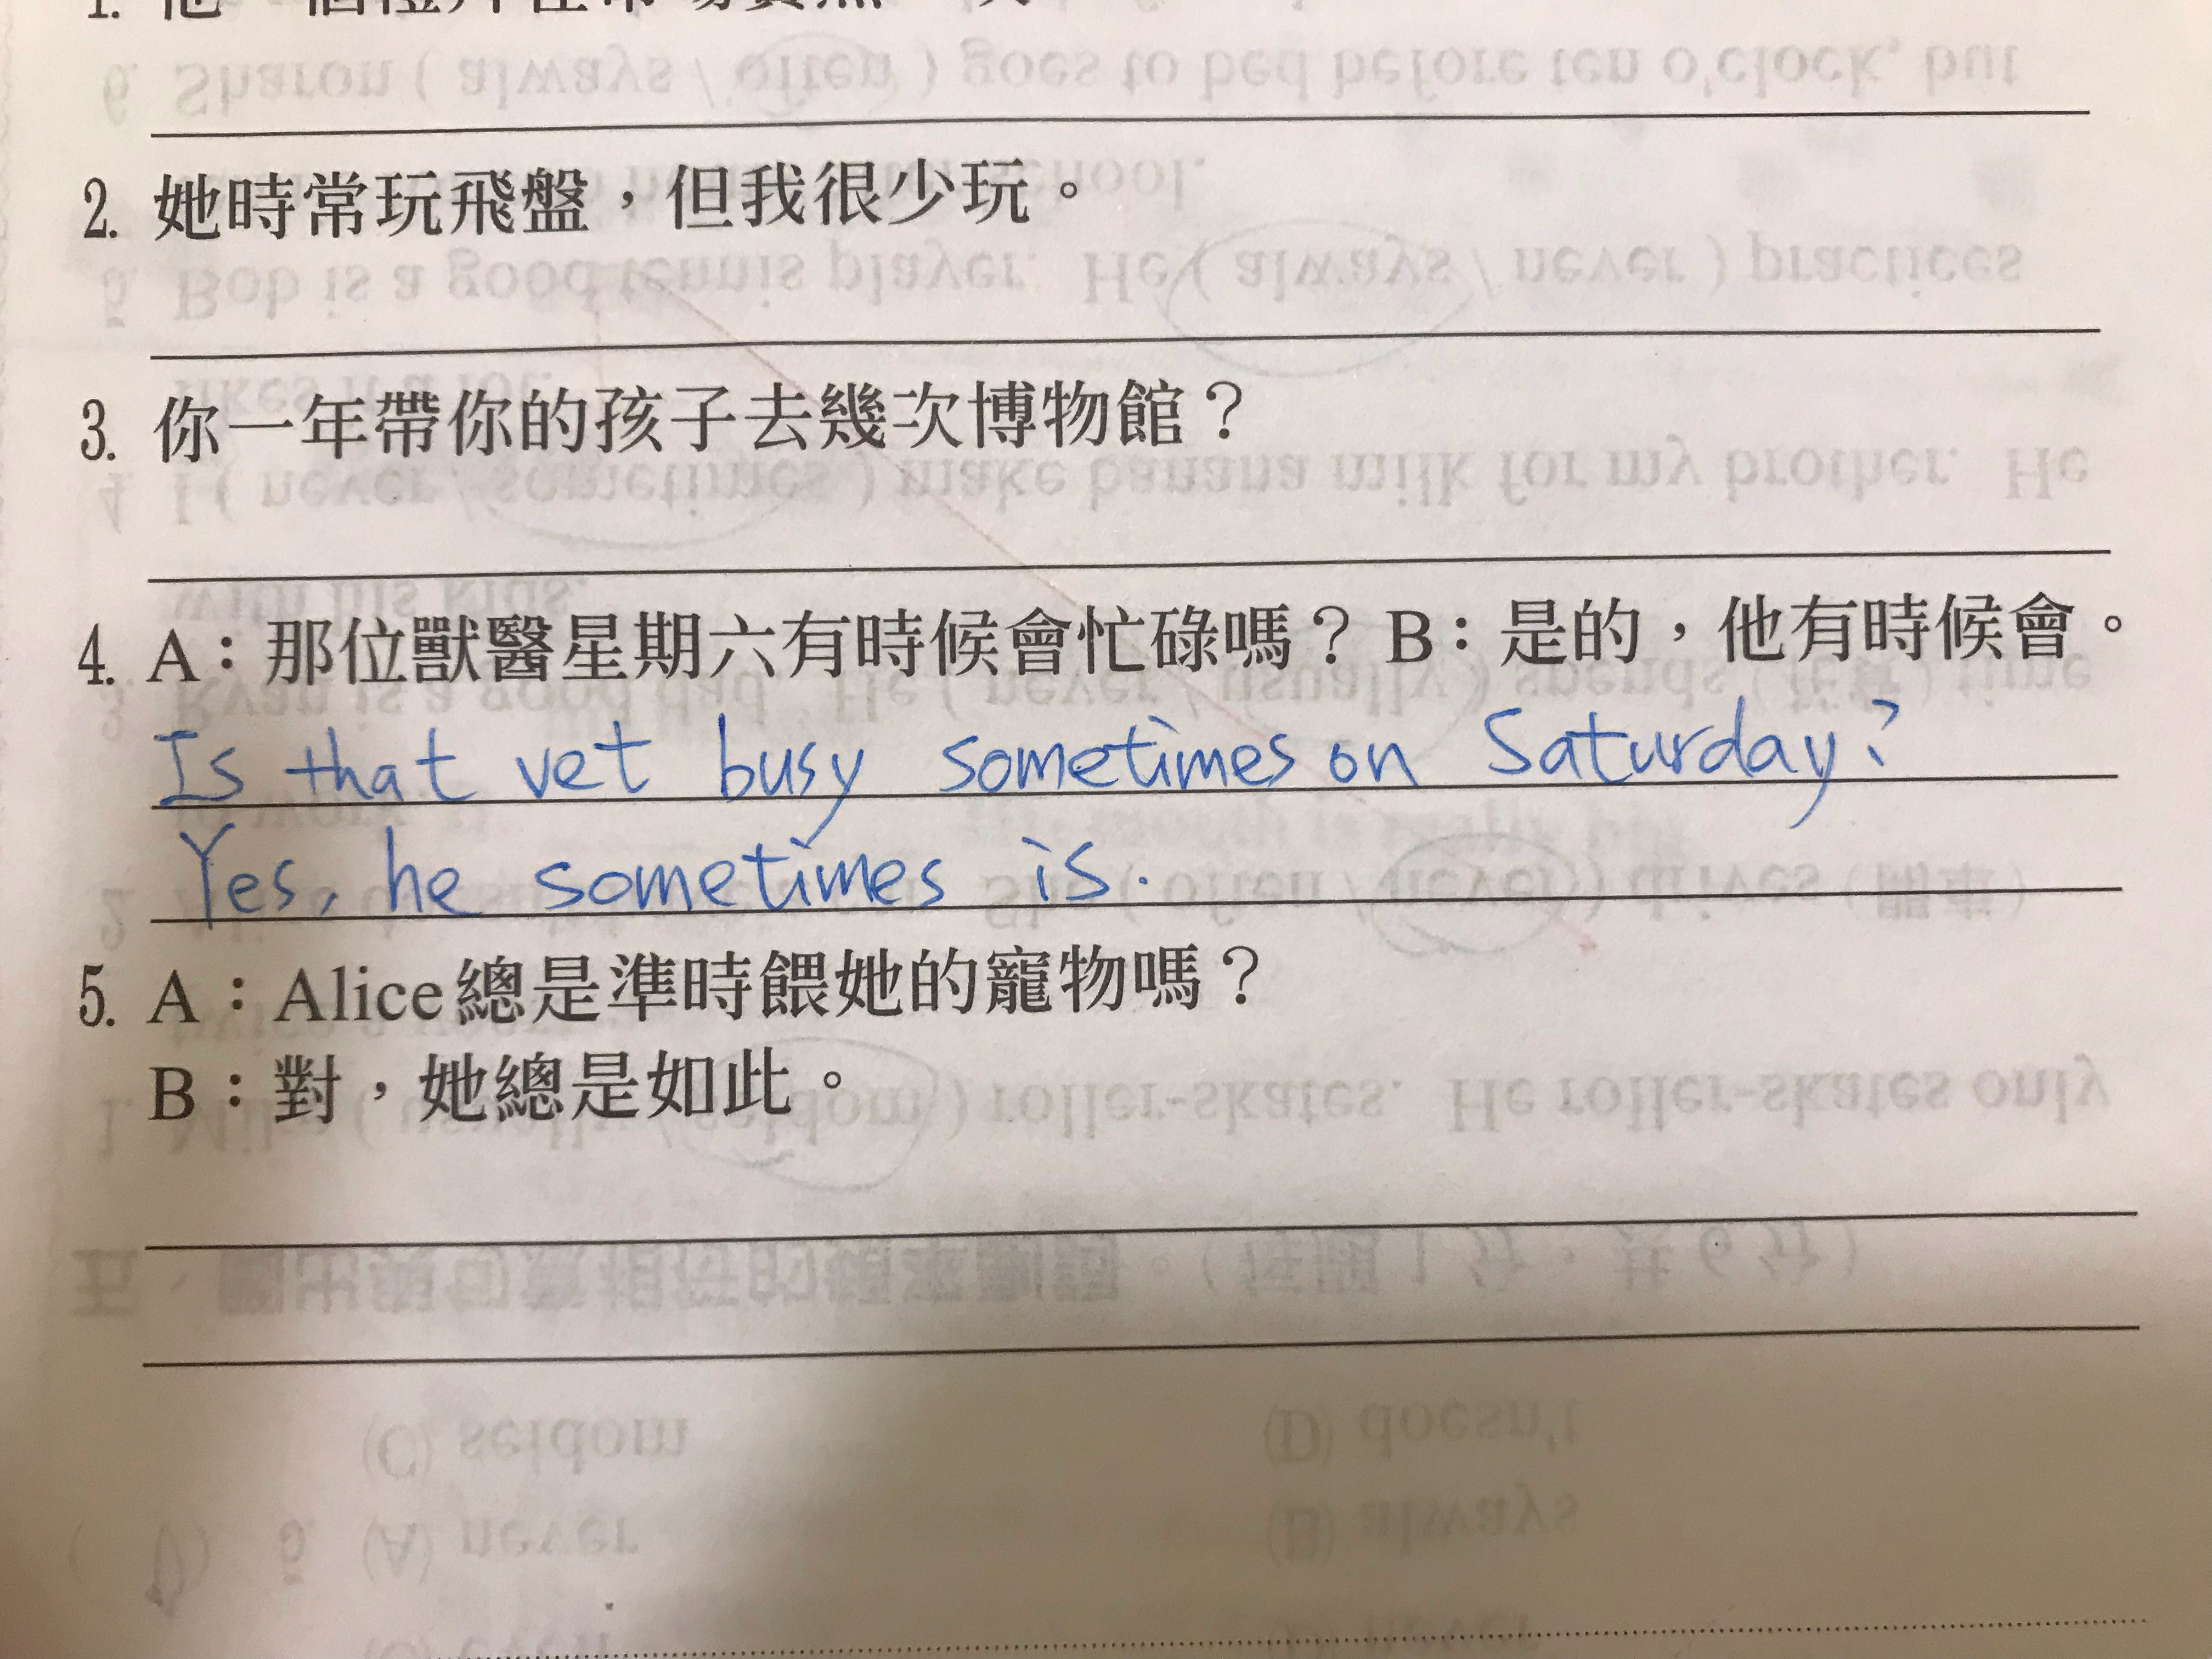 2. 她時常玩飛盤，但我很少玩。
3. 你一年帶你的孩子去幾次博物館？
4. A：那位獸醫星期六有時候會忙碌嗎？ B：是的，他有時候會。
Is that vet busy sometimes on Saturday?
Yes, he sometimes is.
5. A：Alice總是準時餵她的寵物嗎？
B：對，她總是如此。